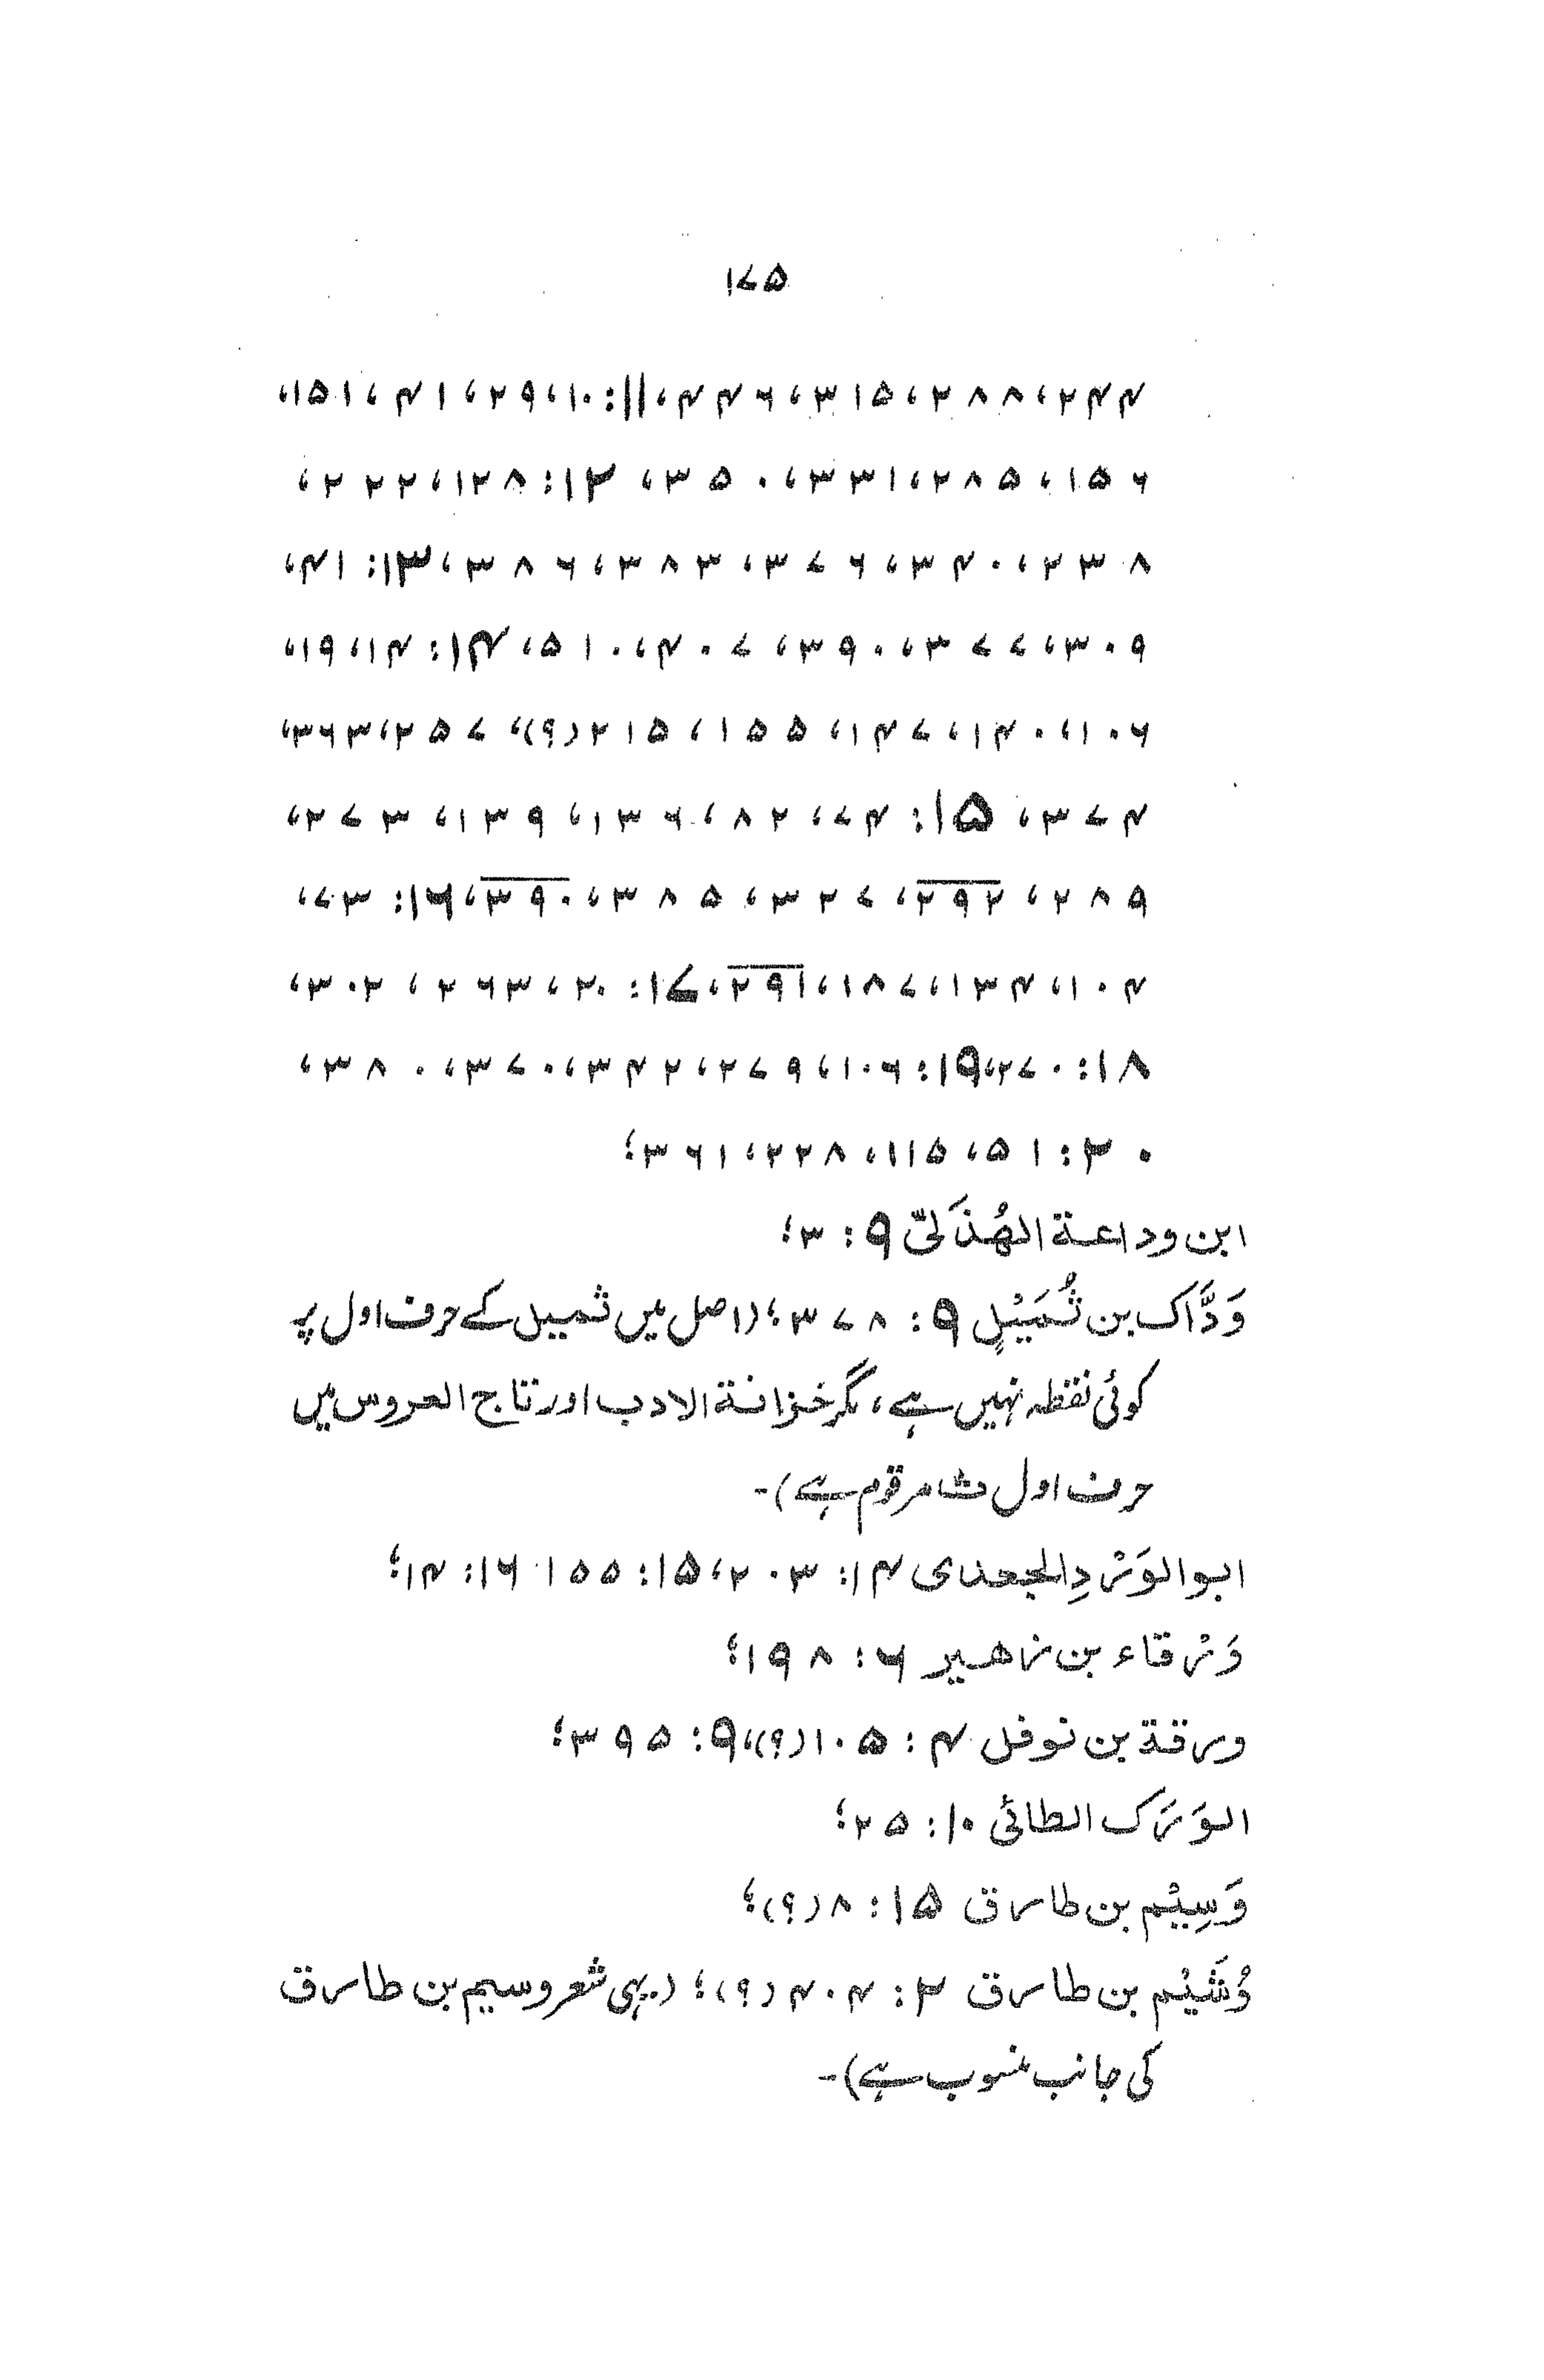 ۱۷۵
۲۴۴، ۲۸۸، ۳۱۵، ۴۴۶، ۱۱: ۱۰، ۲۹، ۴۱، ۱۵۱،
۱۵۶، ۲۸۵، ۳۳۱، ۳۵۰، ۱۲: ۱۲۸، ۲۲۲،
۲۳۸، ۳۴۰، ۳۷۶، ۳۸۳، ۳۸۶، ۱۳: ۴۱،
۳۰۹، ۳۷۷، ۳۹۰، ۴۰۷، ۵۱۰، ۱۴: ۱۴، ۱۹،
۱۰۶، ۱۴۰، ۱۴۷، ۱۵۵، ۲۱۵(؟)، ۲۵۷، ۳۶۳،
۳۷۴، ۱۵: ۷۴، ۸۲، ۱۳۶، ۱۳۹، ۲۷۳،
۲۸۹، ۲۹۲، ۳۲۷، ۳۸۵، ۳۹۰، ۱۶: ۷۳،
۱۰۴، ۱۳۴، ۱۸۷، ۲۹۱، ۱۷: ۲۰، ۲۶۳، ۳۰۲،
۱۸: ۲۷۰، ۱۹: ۱۰۶، ۲۷۹، ۳۴۲، ۳۷۰، ۳۸۰،
۲۰: ۵۱، ۱۱۵، ۲۲۸، ۳۶۱؛
ابن وداعة الهُذَلیّ ۹: ۳؛
وَدَّاک بن ثُمَیْلٍ ۹: ۳۷۸؛ (اصل میں ثمیل کے حرف اول پر
کوئی نقطہ نہیں ہے، مگر خزانة الادب اور تاج العروس میں
حرف اول ث مرقوم ہے)۔
ابو الوَرْدِ الجعدی ۱۴: ۲۰۳، ۱۵: ۱۵۵ ۱۶: ۱۴؛
وَرْقاء بن زهیر ۶: ۱۹۸؛
ورقة بن نوفل ۴: ۱۰۵(؟)، ۹: ۳۹۵؛
الوَرَک الطائی ۱۰: ۲۵؛
وَسِیْم بن طارق ۱۵: ۸(؟)؛
وُشَیْم بن طارق ۲: ۴۰۴(؟)؛ (یہی شعر وسیم بن طارق
کی جانب منسوب ہے)۔